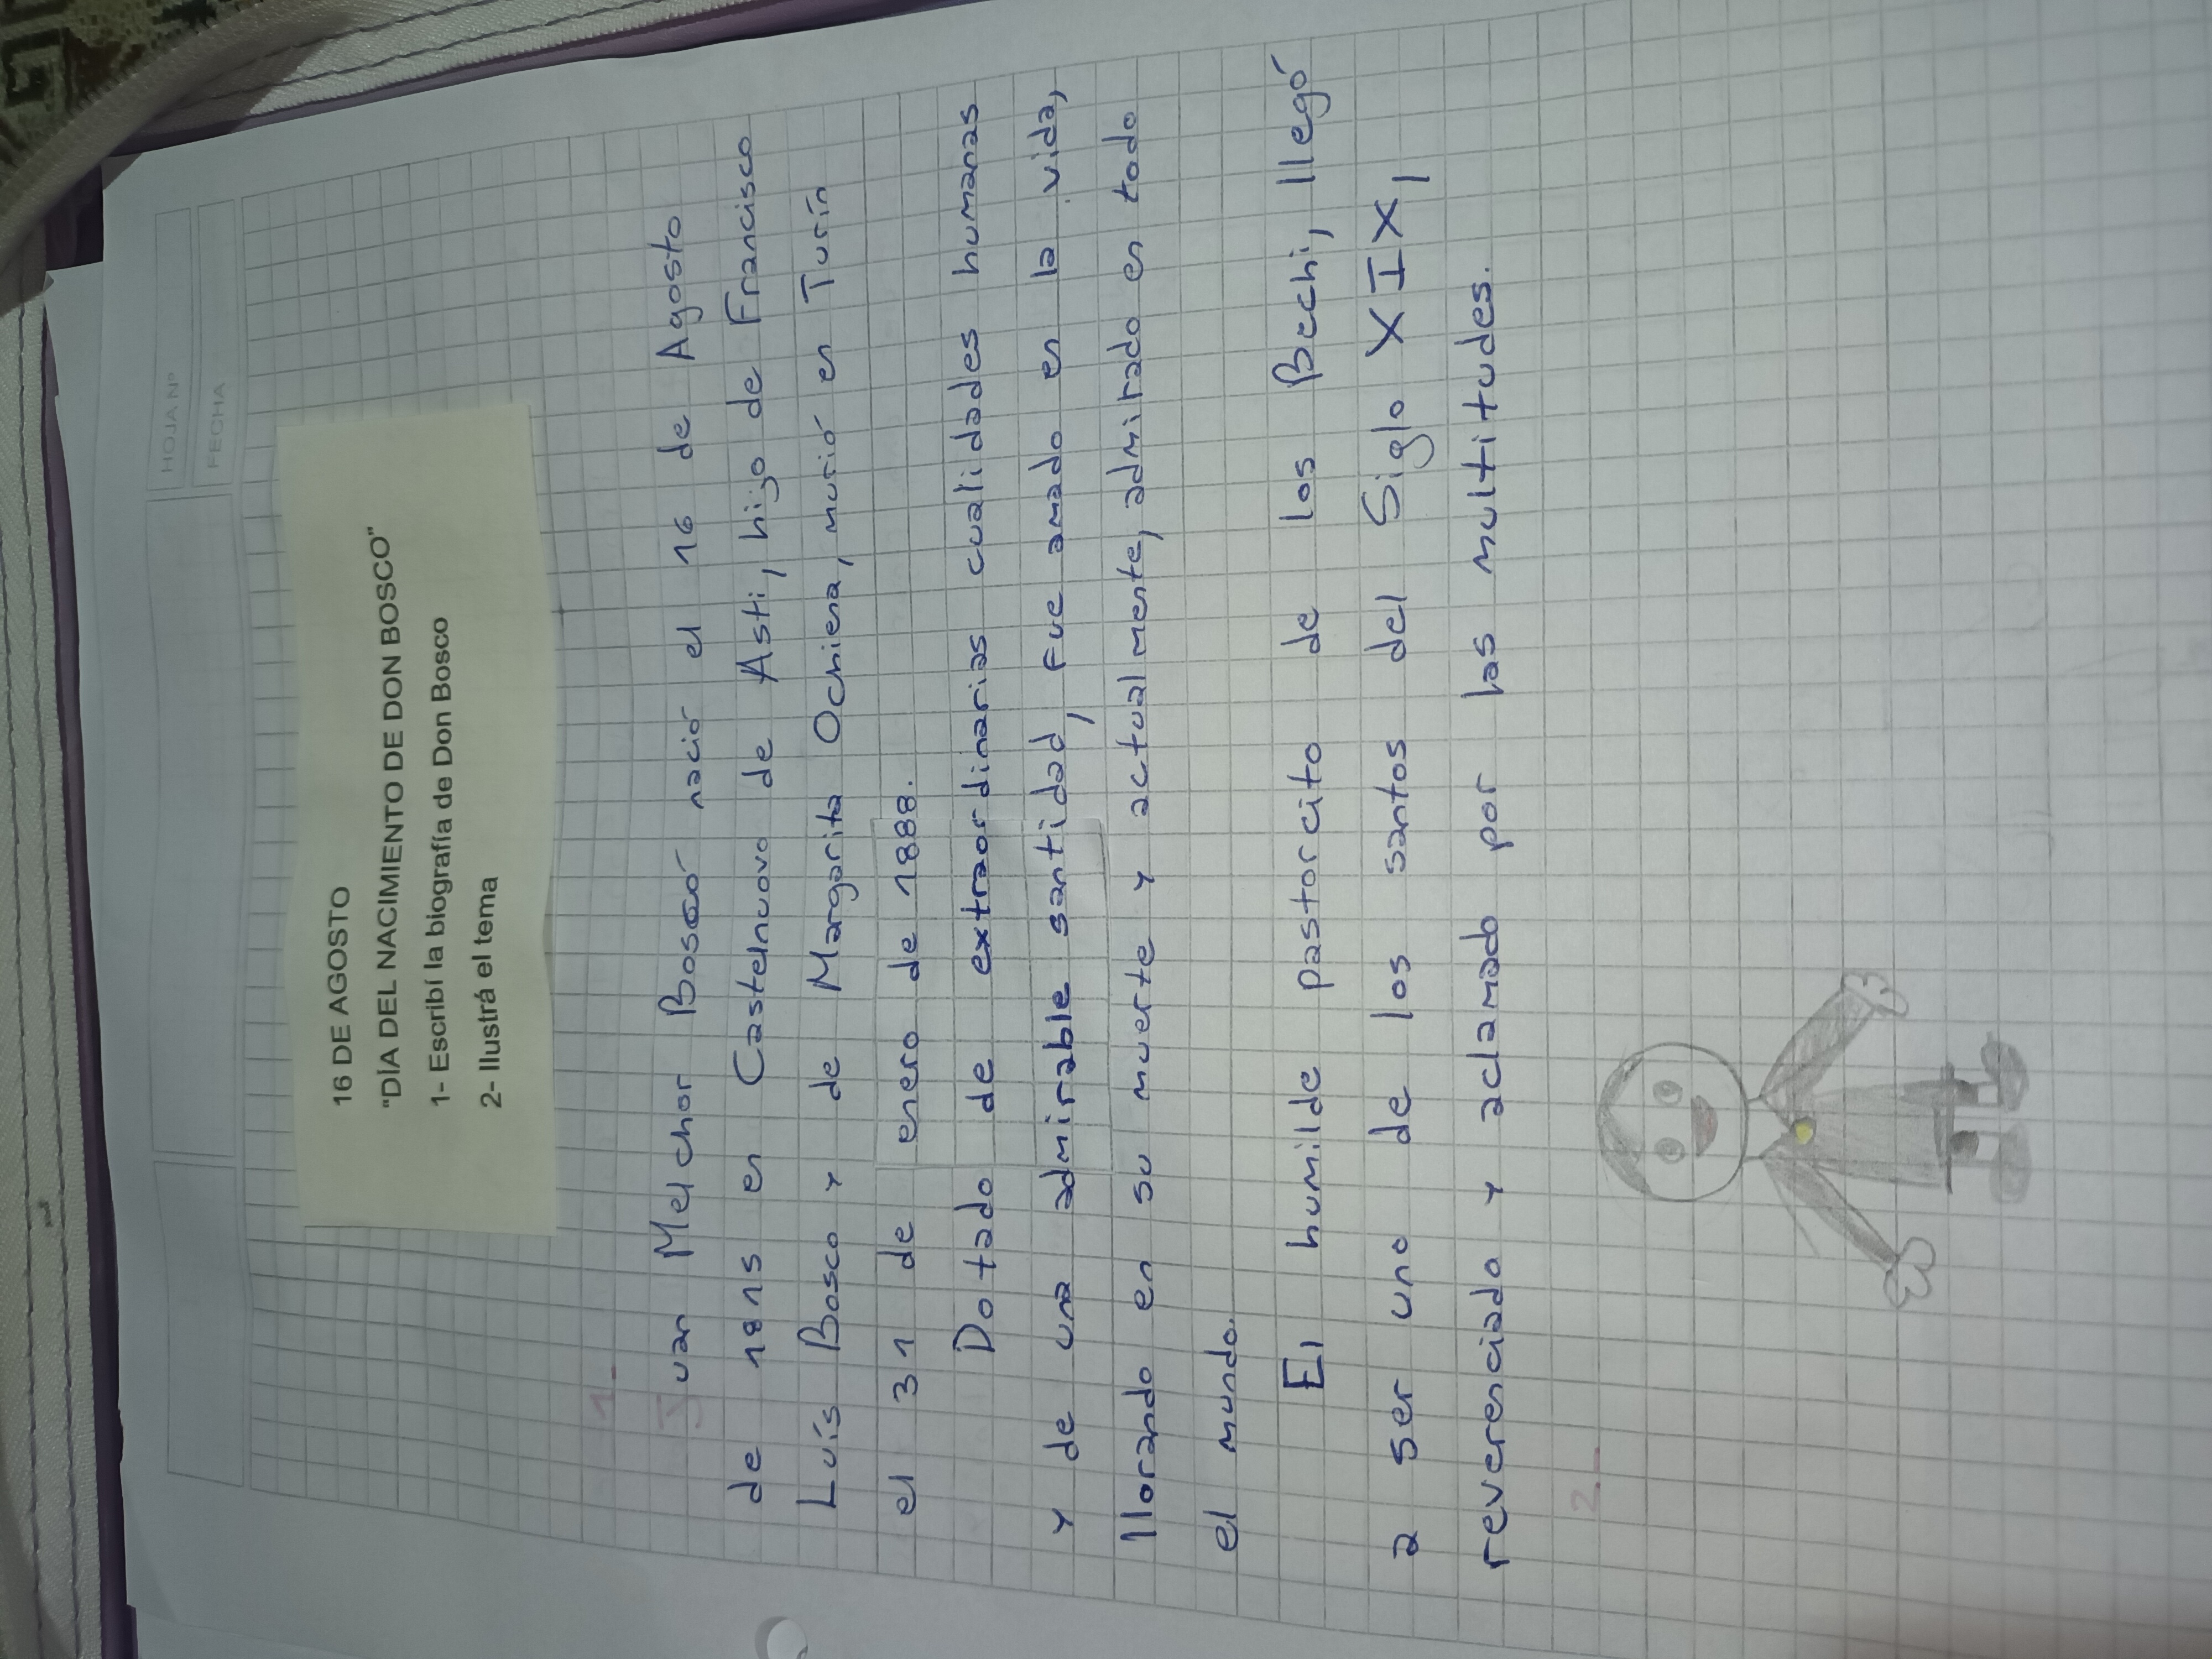 HOJA Nº
FECHA
16 DE AGOSTO
"DÍA DEL NACIMIENTO DE DON BOSCO"
1- Escribí la biografía de Don Bosco
2- Ilustrá el tema
1-
Juan Melchor Bosco nació el 16 de Agosto
de 1815 en Castelnuovo de Asti, hijo de Francisco
Luís Bosco y de Margarita Ochiena, murió en Turín
el 31 de enero de 1888.
Dotado de extraordinarias cualidades humanas
y de una admirable santidad, fue amado en la vida,
llorando en su muerte y actualmente, admirado en todo
el mundo.
El humilde pastorcito de los Becchi, llegó
a ser uno de los santos del Siglo XIX,
reverenciado y aclamado por las multitudes.
2-